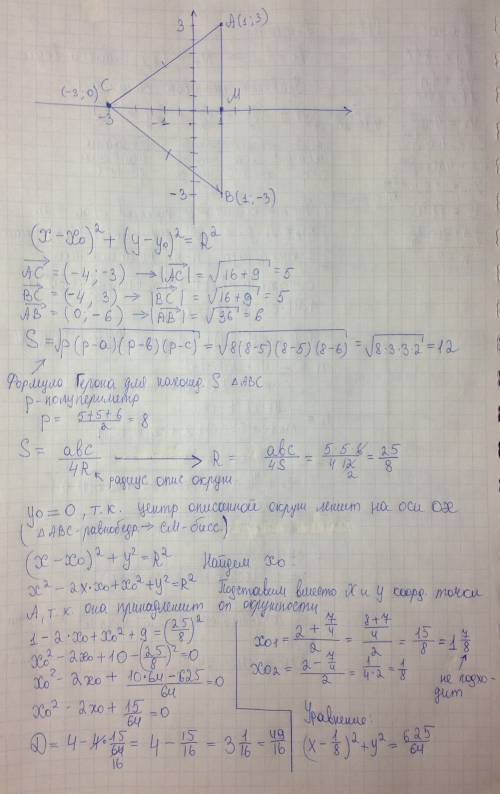 3
A(1;3)
(-3;0) C
M
-3
-1
1
-3
B(1;-3)
(x-x₀)²+(y-y₀)²=R²
AC=(-4;-3) →|AC|=√16+9=5
BC=(-4; 3) →|BC|=√16+9=5
AB=(0;-6) →|AB|=√36=6
S=√p(p-a)(p-в)(p-c)=√8(8-5)(8-5)(8-6)=√8·3·3·2=12
Формула Герона для наханд. S △ABC
p-полупериметр
p= 5+5+6/2 = 8
S= aвc/4R → R= aвc/4S = 5·5·6/4·12 2 = 25/8
радиус опис окружн.
y₀=0, т.к. центр описанной окружн лежит на оси OX
(△ABC-равнобедр→ CM-бисс)
(x-x₀)²+y²=R² Найдем x₀:
x²-2x·x₀+x₀²+y²=R² Подставим вместо X и y коорд. точки
A, т.к. она принадлежит оп окружности
1-2·x₀+x₀²+9=(25/8)²
x₀²-2x₀+10-(25/8)²=0
x₀²-2x₀+ 10·64-625/64=0
x₀²-2x₀+ 15/64=0
D=4-4·15/64 16= 4-15/16= 3 1/16= 49/16
x₀₁= 2+7/4/2= 8+7/4/2= 15/8=1 7/8
x₀₂= 2-7/4/2= 1/4·2= 1/8
не подхо-
дит
Уравнение:
(x-1/8)²+y²= 625/64